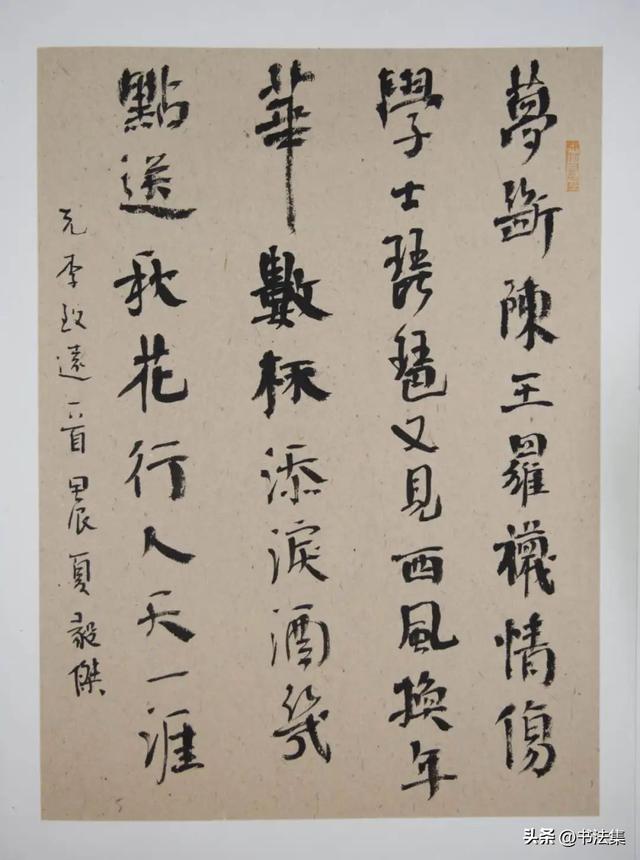 夢斷陳王羅襪情傷
學士琵琶又見西風換年
華數杯添淚酒幾
點送秋花行人天一涯
元李致遠一首甲辰夏毅傑
头条 @书法集